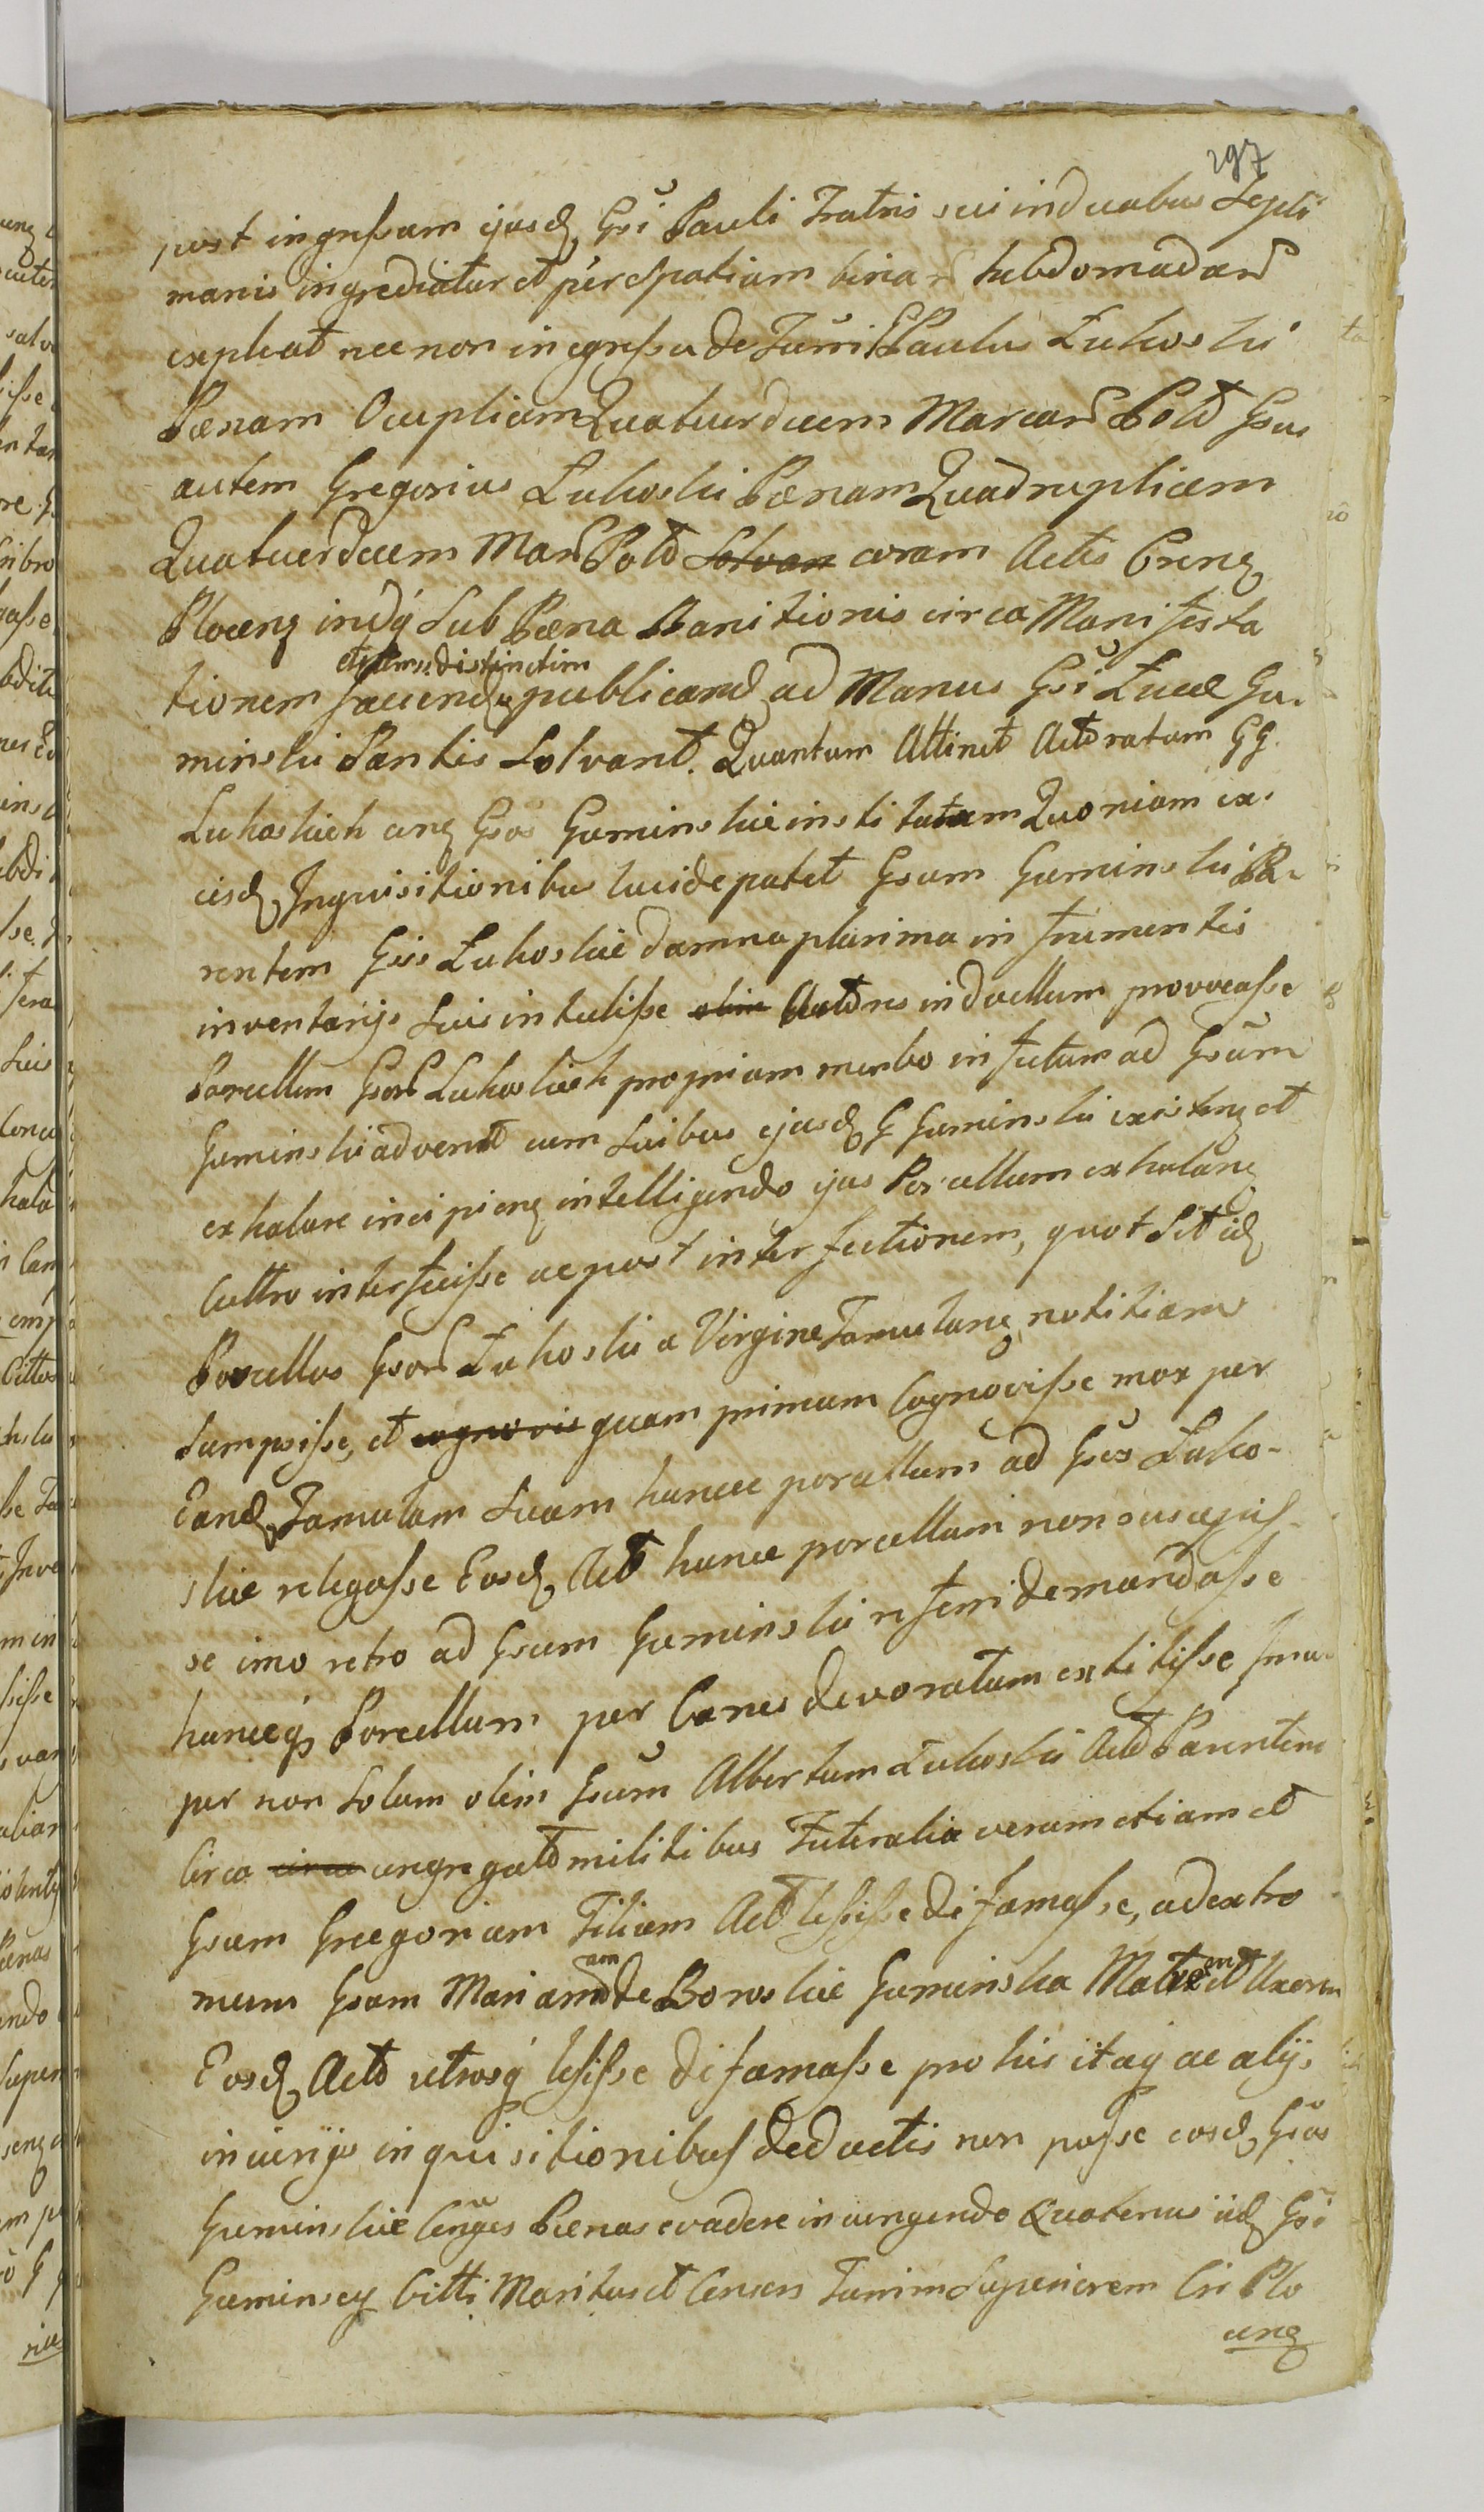 297
post ingressum ejusd Gsi Pauli Fratris sui in duabus Septi
manis ingrediatur et per spatium binar hebdomadar
expleat nec non in egressu de Turri G Paulus Lukoski
Pœnam Ocuplicem Quatuordecem Marcar Pold Gsus
autem Gregorius Lukoski Pœnam Quadruplicem
Quatuordecem Mar Pold Solvan coram Actis
Plocenȝ indq Sub Pœna Banitionis circa Manifesta
tionem faciend distinctim publicand ad Manus Gsi Lucæ Gu.
minski Partis Solvant. Quantum Attinet Actoratum GG.
Lukoskich Gsos Guminskie institutam Quoniam ex.
eisd Inquisitionibus lucide patet Gsum Guminski Pa.
rentem Gsis Lukoskie damna plurima in frumentis
inventarijs Suis intulisse olim Actores in duellum provocasse
Porcellum Gsor Lukoskich propriam morbo infectum ad Gsum
Guminski advenit cum Suibus ejusd G Guminski existenȝ et
exhalare incipienȝ intelligendo ejus Porcellum exhalanȝ
Cultro interfecisse ac post interfectionem, quot Sit id
Porcellus Gsor Lukoski a Virgine Famulanȝ notitiam
Sumpsisse, et cognovis quam primum Cognovisse mox per
Eand Famulam Suam hunce porcellum ad Gsos Luko-
skie relegasse Eosd Act hunce porcellum non suscepis-
se imo retro ad Gsum Guminski referri demandasse
hunceq Porcellum per Canes devoratum extitisse Insu
per non Solum olim Gsum Albertum Lukoski Act Parentem
Circa circa congregat militibus Futeralia verum etiam et
Gsum Gregorium Filium Act lesisse difamasse, ad extre
mum Gsam Mariannam de Boroskie Guminska Matrem et Uxorem
Eosd Act utrosq lesisse difamasse pro his itaq ac alijs
injurijs inquisitionibus deductis non posse eosd Gsos
Guminskie Congs Pœnas evadere injungendo Quatenus iid Gsi
Guminscy Citti Maritus et Consors Turrim Superiorem Cri Plo
cenȝ